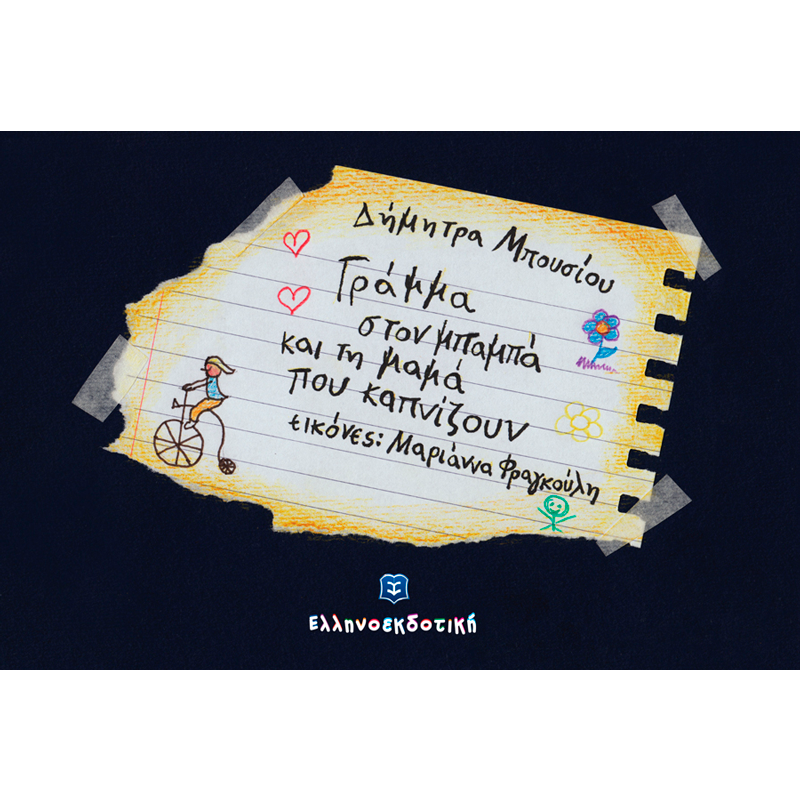 Δήμητρα Μπουσίου
Γράμμα
στον μπαμπά
και τη μαμά
που καπνίζουν
εικόνες: Μαριάννα Φραγκούλη
Ελληνοεκδοτική